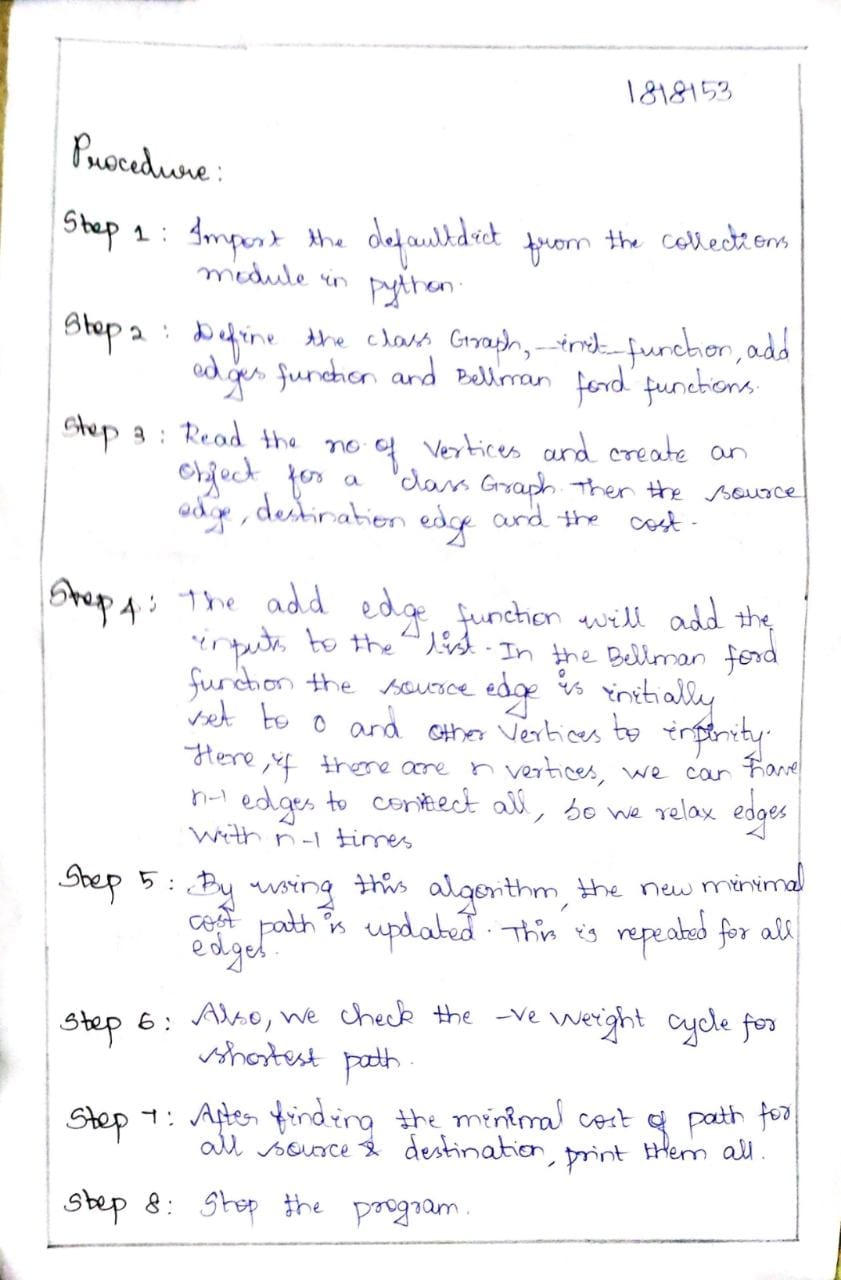 1818153
Procedure:
Step 1: Import the defaultdict from the collections
module in python.
Step 2: Define the class Graph, _init_ function, add
edges function and Bellman ford functions.
Step 3: Read the no. of Vertices and create an
object for a class Graph. Then the source
edge, destination edge and the cost.
Step 4: The add edge function will add the
inputs to the list. In the Bellman ford
function the source edge is initially
set to 0 and other Vertices to infinity.
Here, if there are n vertices, we can have
n-1 edges to connect all, so we relax edges
with n-1 times
Step 5: By using this algorithm, the new minimal
cost path is updated. This is repeated for all
edges.
Step 6: Also, we check the -ve weight cycle for
shortest path.
Step 7: After finding the minimal cost of path for
all source & destination, print them all.
Step 8: Stop the program.